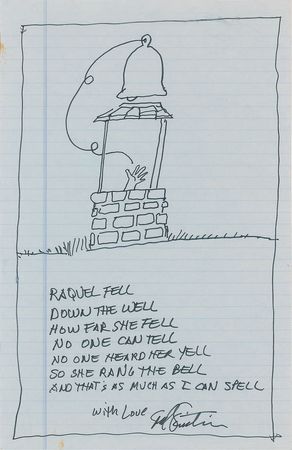 RAQUEL FELL
DOWN THE WELL
HOW FAR SHE FELL
NO ONE CAN TELL
NO ONE HEARD HER YELL
SO SHE RANG THE BELL
AND THAT'S AS MUCH AS I CAN SPELL
with Love